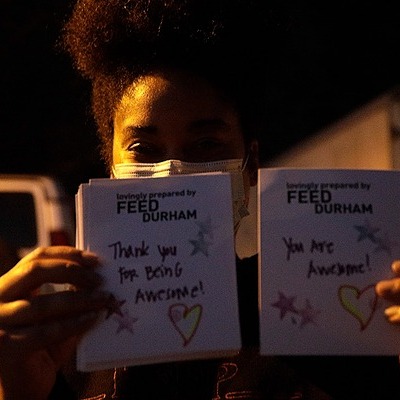 lovingly prepared by
FEED
DURHAM
Thank you
FOR BEING
AWESOME!
lovingly prepared by
FEED
DURHAM
You ARE
Awesome!